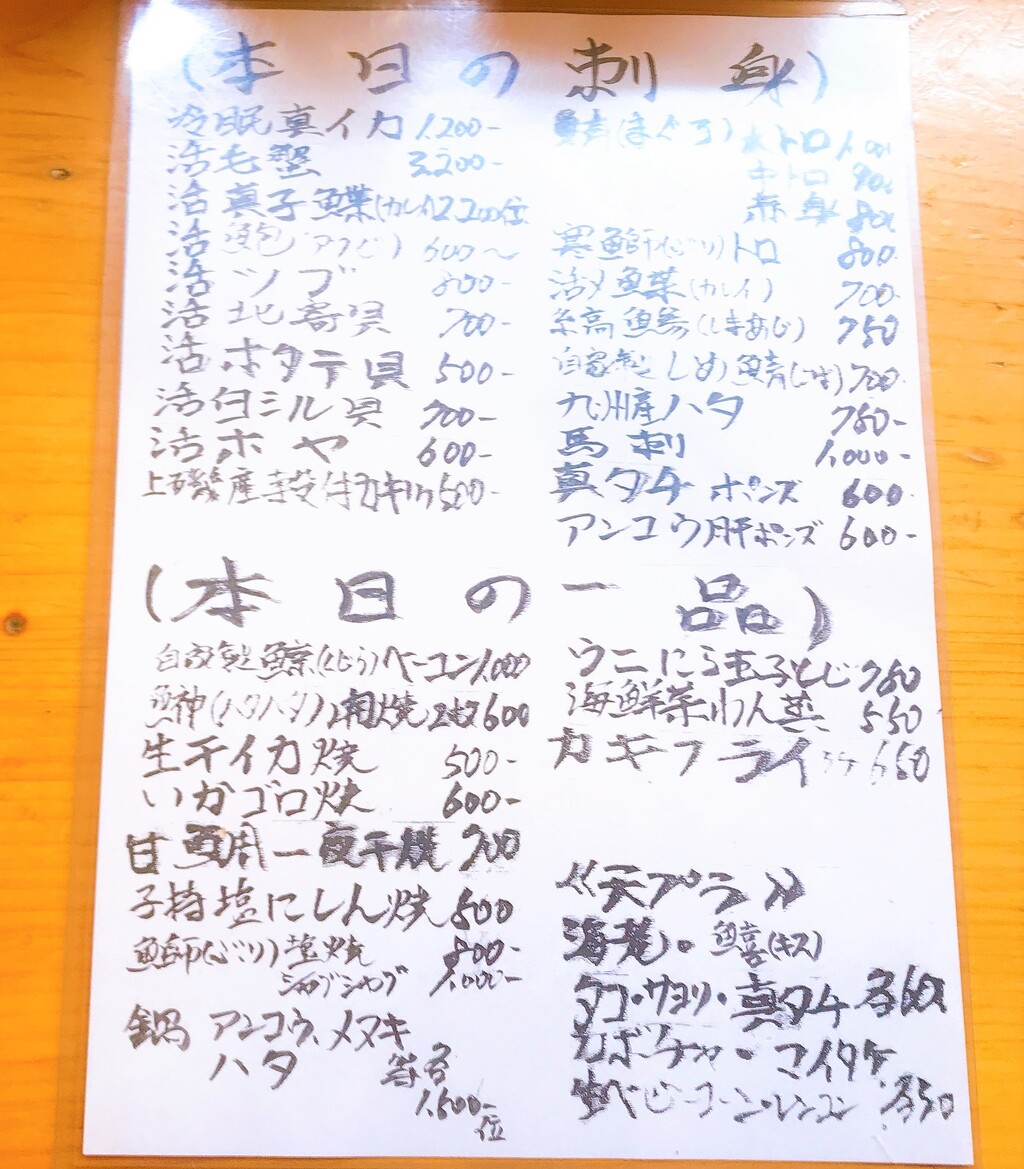 (本日の刺身)
冷眠真イカ 1,200-
活毛蟹 3,200-
活真子鰈(カレイ) 2,200位
活鮑(アワビ) 600〜
活ツブ 800-
活北寄貝 700-
活ホタテ貝 500-
活白ミル貝 700-
活ホヤ 600-
上磯産殻付カキ 500-
鮪(まぐろ) 大トロ 1,000
中トロ 900
赤身 800
寒鰤(ぶり)トロ 800
活〆鰈(カレイ) 700-
縞鰺(しまあじ) 750
自家製しめ鯖(さば) 700-
九州産ハタ 750-
馬刺 1,000-
真タチ ポンズ 600-
アンコウ肝ポンズ 600-
(本日の一品)
自家製鯨(くじら)ベーコン 1,000
鰰(ハタハタ) 焼 2枚 600
生干イカ焼 500-
いかゴロ焼 600-
甘鯛一夜干焼 900
子持塩にしん焼 500
鰤(ぶり)塩焼 800-
シャブシャブ 1,000-
鍋 アンコウ、メヌキ
ハタ 等各
1,600-
位
ウニにら玉子とじ 750
海鮮茶わん蒸 550
カキフライ 650
《天プラ》
海老・鱚(キス)
タコ・サヨリ・真タチ 各600
カボチャ・マイタケ
生ベビーコーン・レンコン 各350